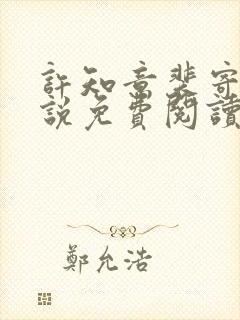 許知意裴寄
說免費閱讀
鄭允浩